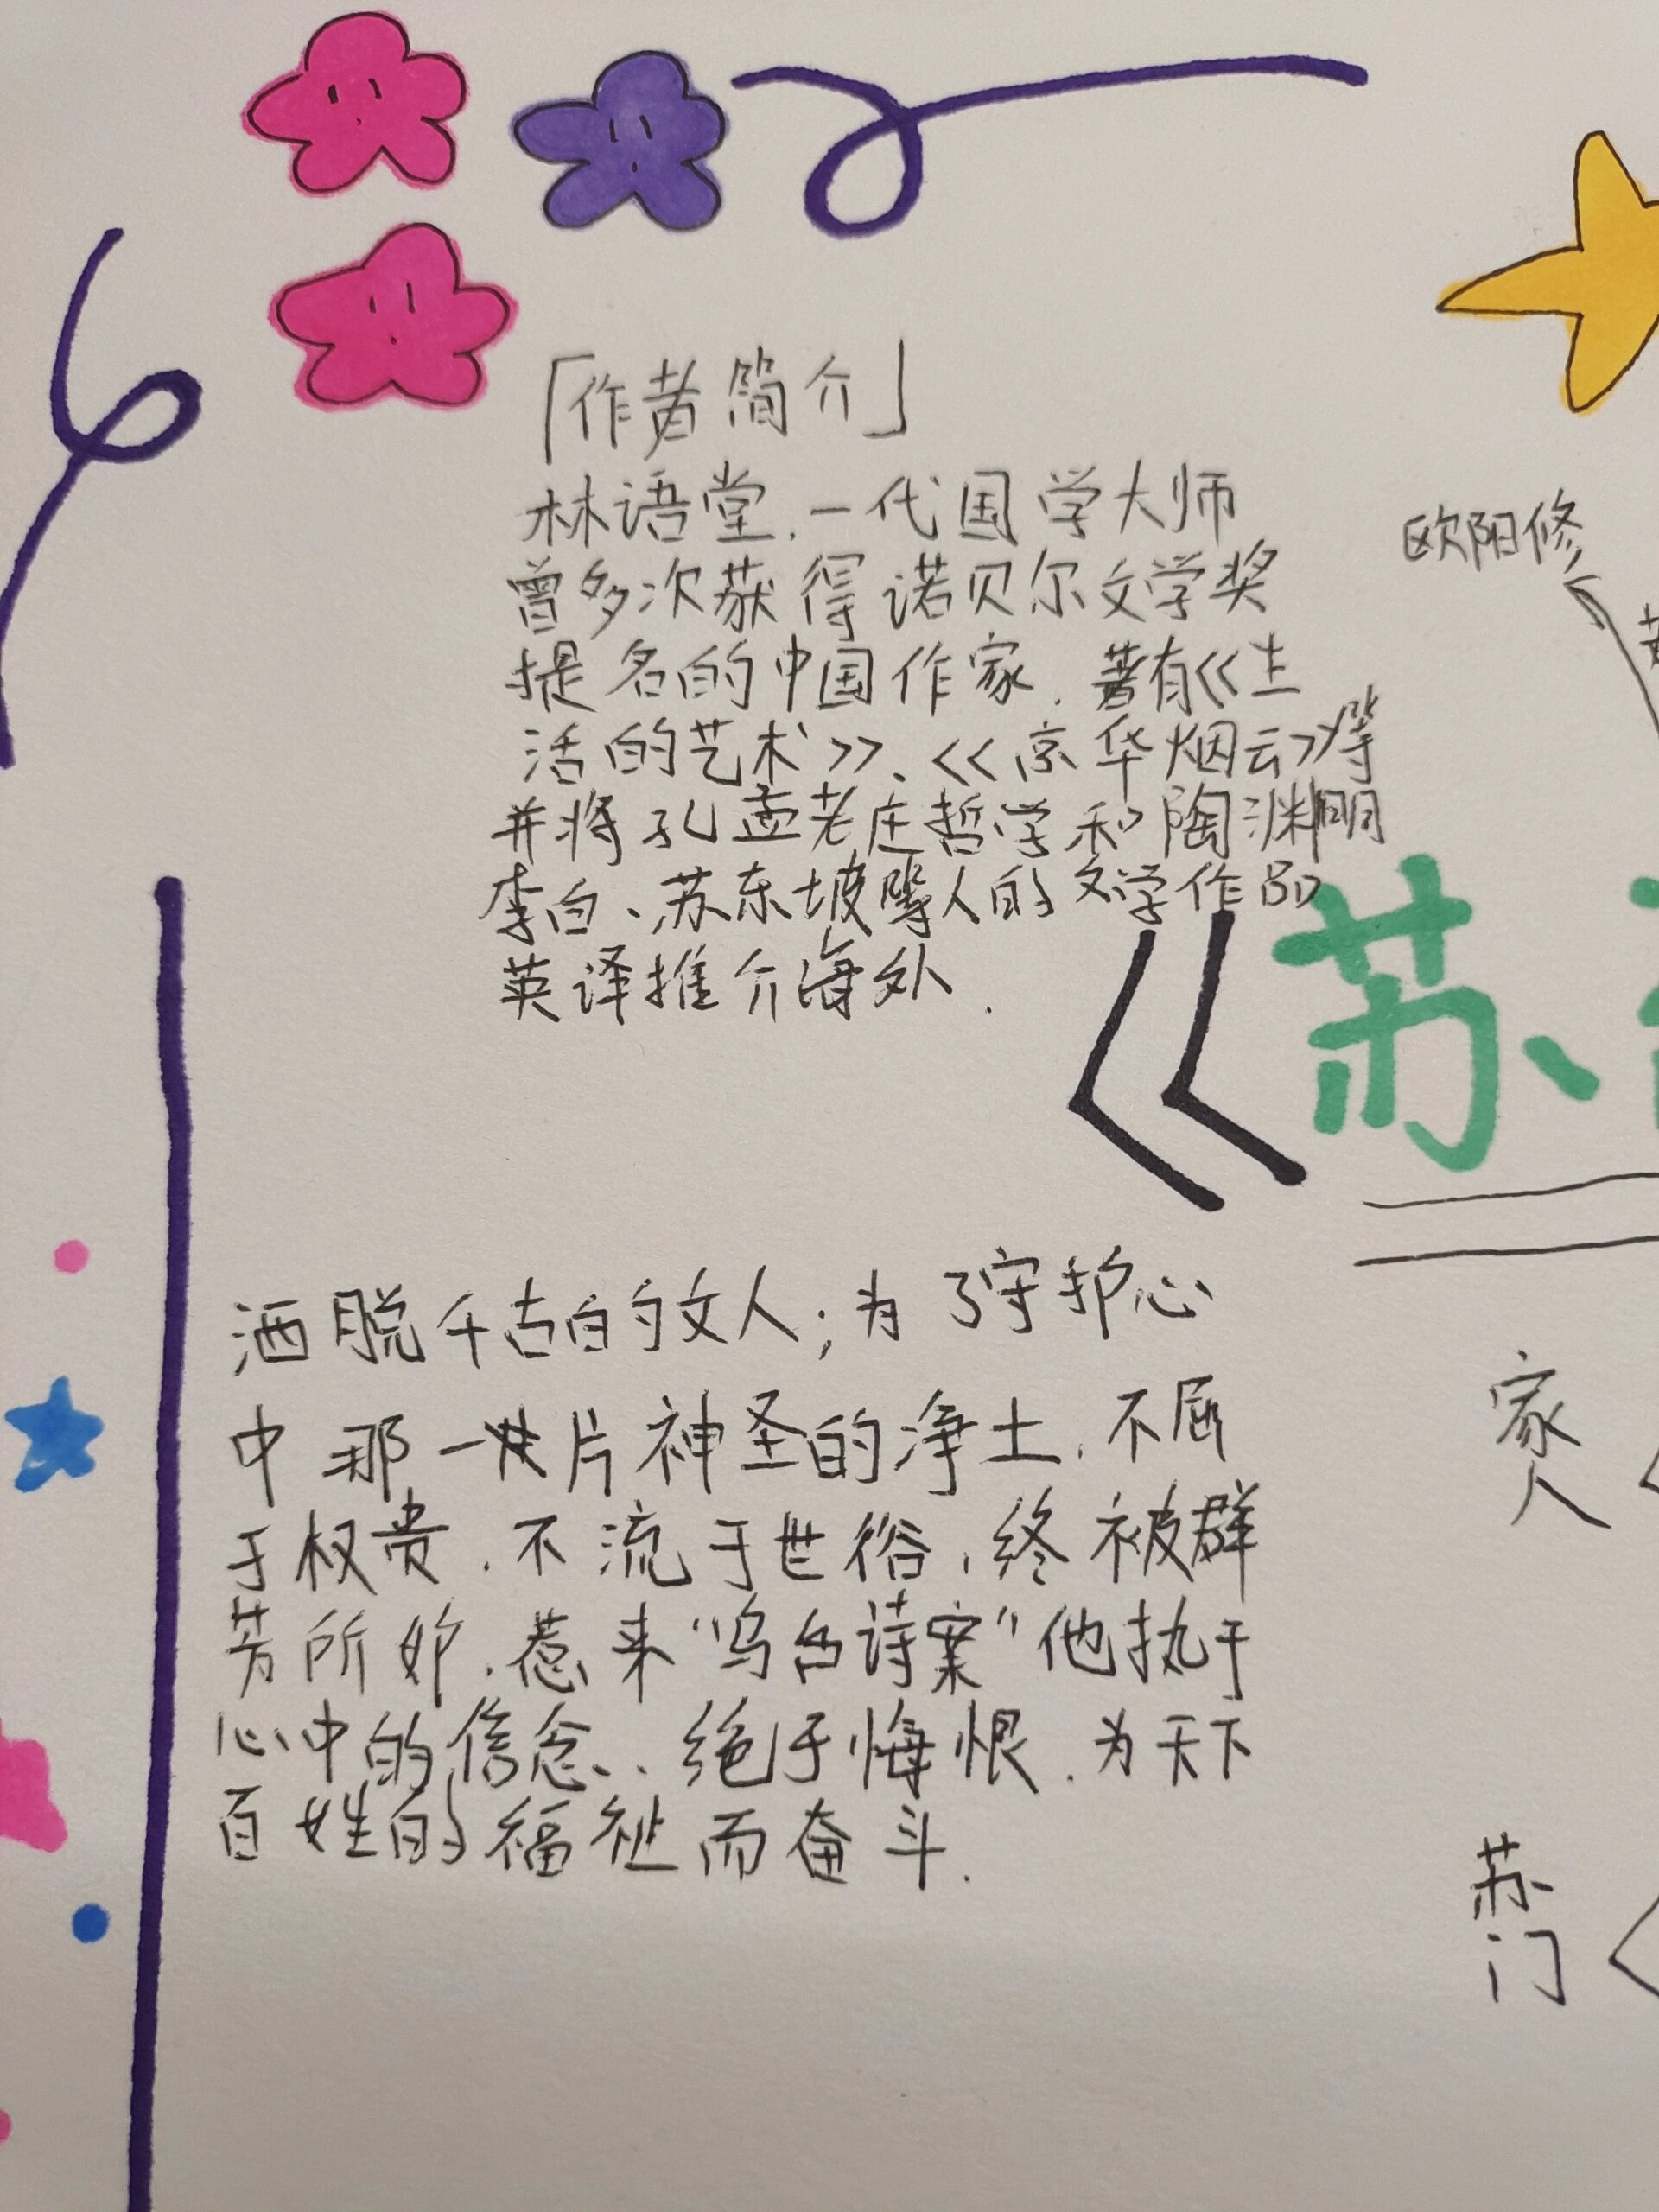 「作者简介」
林语堂.一代国学大师
曾多次获得诺贝尔文学奖
提名的中国作家.著有《生
活的艺术》、《京华烟云》等
并将孔孟老庄哲学和陶渊明
李白、苏东坡等人的文学作品
英译推介海外.
欧阳修
《苏
洒脱千古的文人;为了守护心
中那一片神圣的净土.不屈
于权贵.不流于世俗,终被群
芳所妒.惹来“乌台诗案”他执于
心中的信念..绝于悔恨.为天下
百姓的福祉而奋斗.
家
人
苏
门